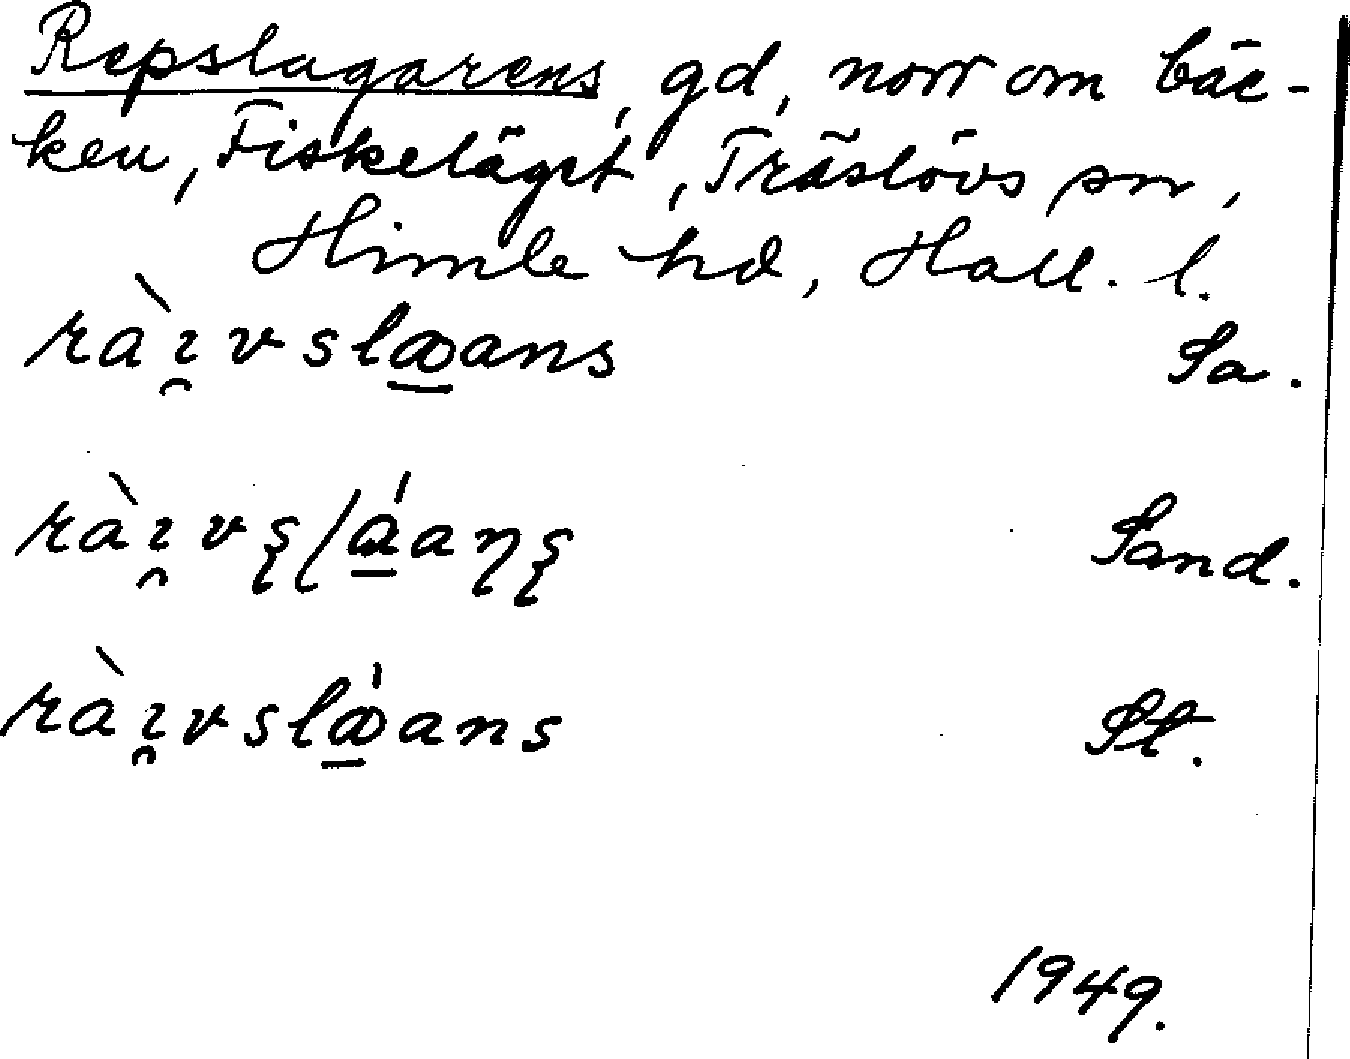 Repslagarens, gd, norr om bäc-
ken, Fiskeläget, Träslövs sn,
Himle hd, Hall. l.
ràı̯vslꝏ̲ans Sa.
ràı̯vʂɭá̲aɳʂ Sand.
ràı̯vslꝏ̲́ans St.
1949.